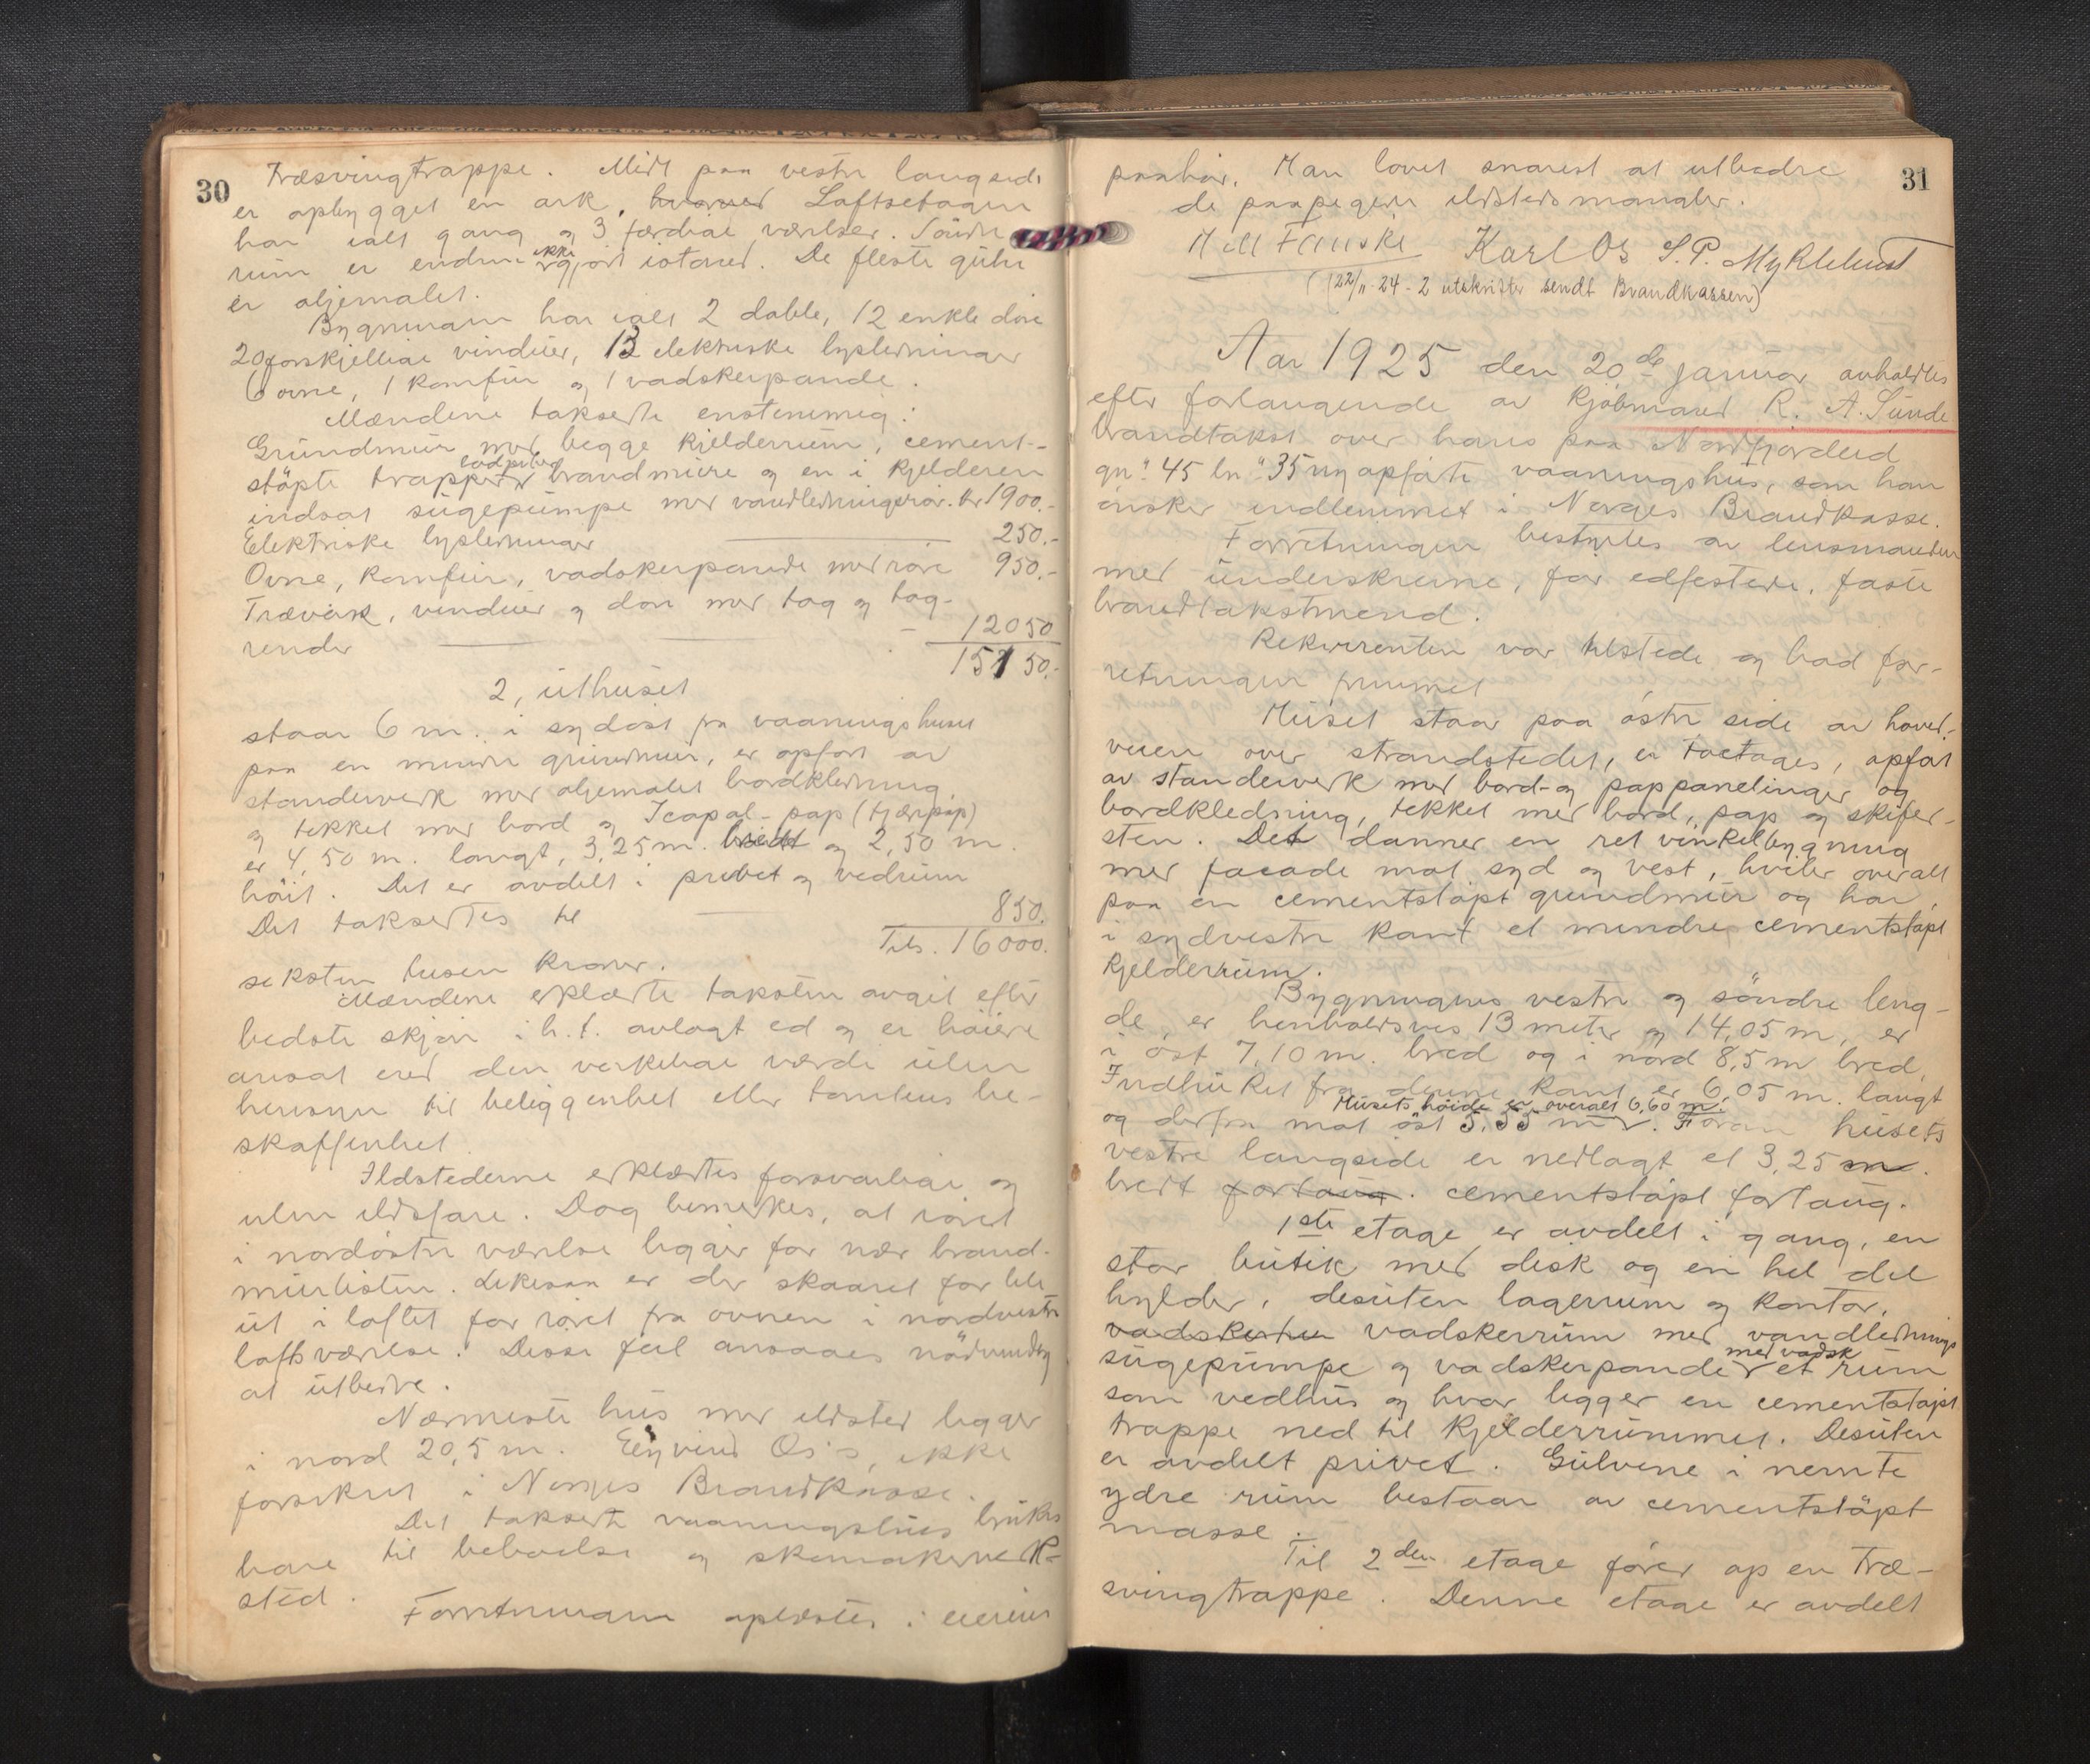 30
Træsvingtrappe. Midt paa vestre langside
er opbygget en ark, hvormed Loftsetagen
har ialt gang og 3 færdige værelser. Söndre
rum er endnu ikke gjort istand. De fleste gulve
er oljemalet.
Bygningen har ialt 2 doble, 12 enkle döre
20 forskjellige vinduer, 13 elektriske lysledninger
6 ovne, 1 komfur og 1 vadskerpande.
Mændene takserte enstemmig:
Grundmur med begge kjelderrum, cement-
stöpte trapper, lodpiber, brandmure og en i kjelderen
indsat sugepumpe med vandledningsrör. kr 1900.-
Elektriske lysledninger 250.-
Ovne, komfur, vadskerpande med röre 950.-
Træverk, vinduer og döre med tag og tag-
render 12050
15150.-
2, uthuset
staar 6 m. i sydöst fra vaaningshuset
paa en mindre grundmur, er opfört av
standerverk med oljemalet bordkledning
og tekket med bord og Icopal-pap (tjærepap)
er 4,50 m. langt, 3,25 m. bredt og 2,50 m.
höit. Det er avdelt i privet og vedrum
Det taksertes til 850.
Tils. 16000.
seksten tusen kroner.
Mændene erklærte taksten avgit efter
bedste skjön i h. t. avlagt ed og er höiere
ansat end den verkelige værdi uten
hensyn til beliggenhet eller tomtens be-
skaffenhet.
Ildstederne erklærtes forsvarlige og
uten ildsfare. Dog bemerkes, at röret
i nordöstre værelse ligger for nær brand-
murlisten. Likesaa er der skaaret for lite
ut i loftet for röret fra ovnen i nordvestre
loftsværelse. Disse feil ansaaes nödvendig
at utbedre.
Nærmeste hus med ildsted ligger
i nord 20,5 m. Eyvind Os's, ikke
forsikret i Norges Brandkasse.
Det takserte vaaningshus brukes
bare til beboelse og skomakerverk-
sted.
Forretningen oplæstes i eierens
31
paahör. Han lovet snarest at utbedre
de paapegede ildstedsmangler.
M M Fauske Karl Os S. P. Myklebust
(22/11-24 - 2 utskrifter sendt Brandkassen)
Aar 1925 den 20de januar avholdtes
efter forlangende av Kjöbmand R. A. Sunde
brandtakst over hans paa Nordfjordeid
gn. 45 bn. 35 nyopförte vaaningshus, som han
önsker indlemmet i Norges Brandkasse.
Forretningen bestyrtes av lensmanden
med underskrevne, för edfestede, faste
brandtakstmend.
Rekvirenten var tilstede og bad for-
retningen fremmet
Huset staar paa östre side av hoved-
veien over strandstedet, er toetages, opfört
av standerverk med bord- og pappanelinger og
bordkledning, tekket med bord, pap og skifer-
sten. Det danner en ret vinkelbygning
med facade mot syd og vest, hviler overalt
paa en cementstöpt grundmur og har
i sydvestre kant et mindre cementstöpt
kjelderrum.
Bygningens vestre og söndre leng-
de, er henholdsvis 13 meter og 14,05 m, er
i öst 7,10 m. bred og i nord 8,5 m bred.
Indhuket fra denne kant er 6,05 m. langt
og derfra mot öst 5,55 m. Husets höide er overalt 6,60 m. Foran husets
vestre langside er nedlagt et 3,25 m.
bredt fortaug. cementstöpt fortaug.
1ste etage er avdelt i gang, en
stor butik med disk og en hel del
hylder, desuten lagerrum og kontor,
vadskerhu vadskerrum med vandlednings
sugepumpe og vadskerpande med vadsk et rum
som vedhus og hvor ligger en cementstöpt
trappe ned til kjelderrummet. Desuten
er avdelt privet. Gulvene i nevnte
ydre rum bestaar av cementstöpt
masse.
Til 2den etage förer op en Træ-
svingtrappe. Denne etage er avdelt